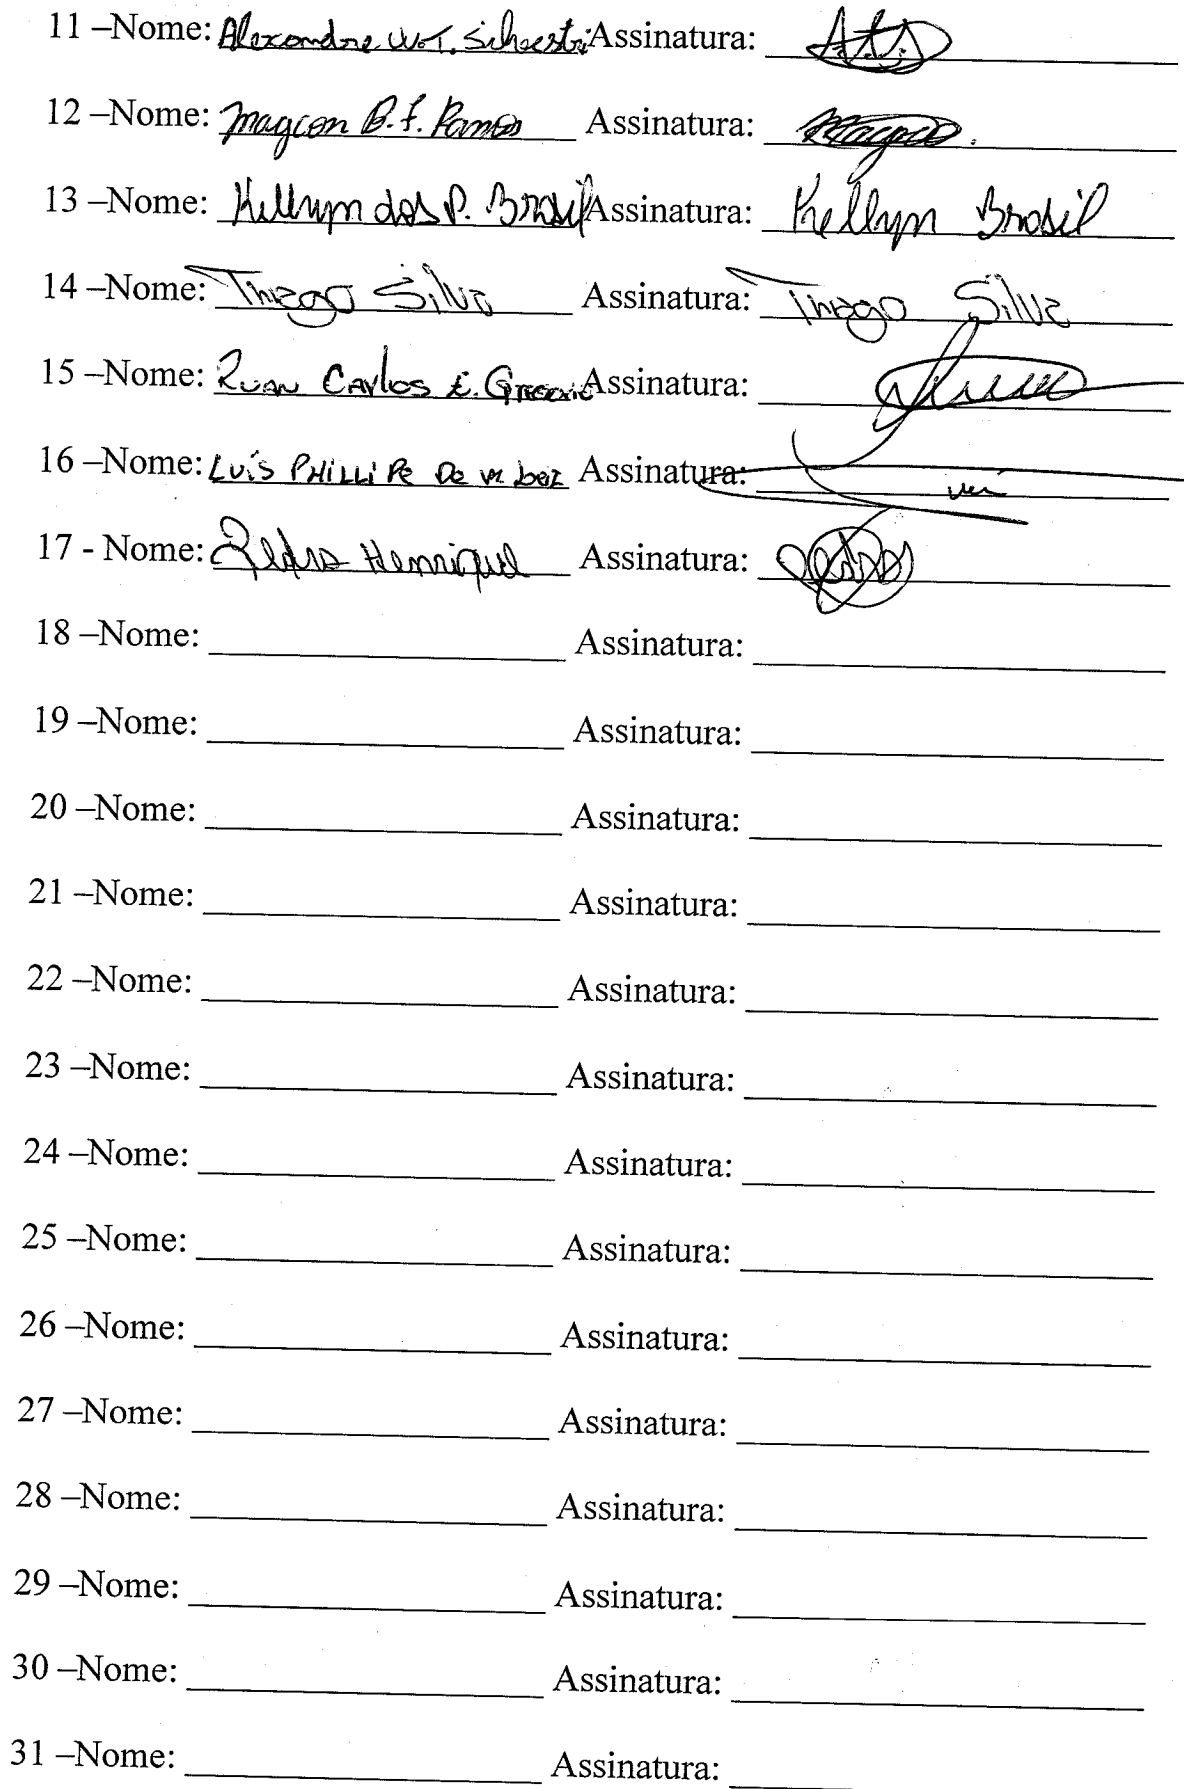 11 –Nome: Alexandre W.T. Silvestri Assinatura:
12 –Nome: Maycon B. F. Ramos Assinatura:
13 –Nome: Kellryn dos P. Brasil Assinatura: Kellyn Brasil
14 –Nome: Thiago Silva Assinatura: Thiago Silva
15 –Nome: Ruan Carlos E. Assinatura:
16 –Nome: Luís PHILLIPE De Assinatura:
17 - Nome: Pedro Henrique Assinatura:
18 –Nome: Assinatura:
19 –Nome: Assinatura:
20 –Nome: Assinatura:
21 –Nome: Assinatura:
22 –Nome: Assinatura:
23 –Nome: Assinatura:
24 –Nome: Assinatura:
25 –Nome: Assinatura:
26 –Nome: Assinatura:
27 –Nome: Assinatura:
28 –Nome: Assinatura:
29 –Nome: Assinatura:
30 –Nome: Assinatura:
31 –Nome: Assinatura: